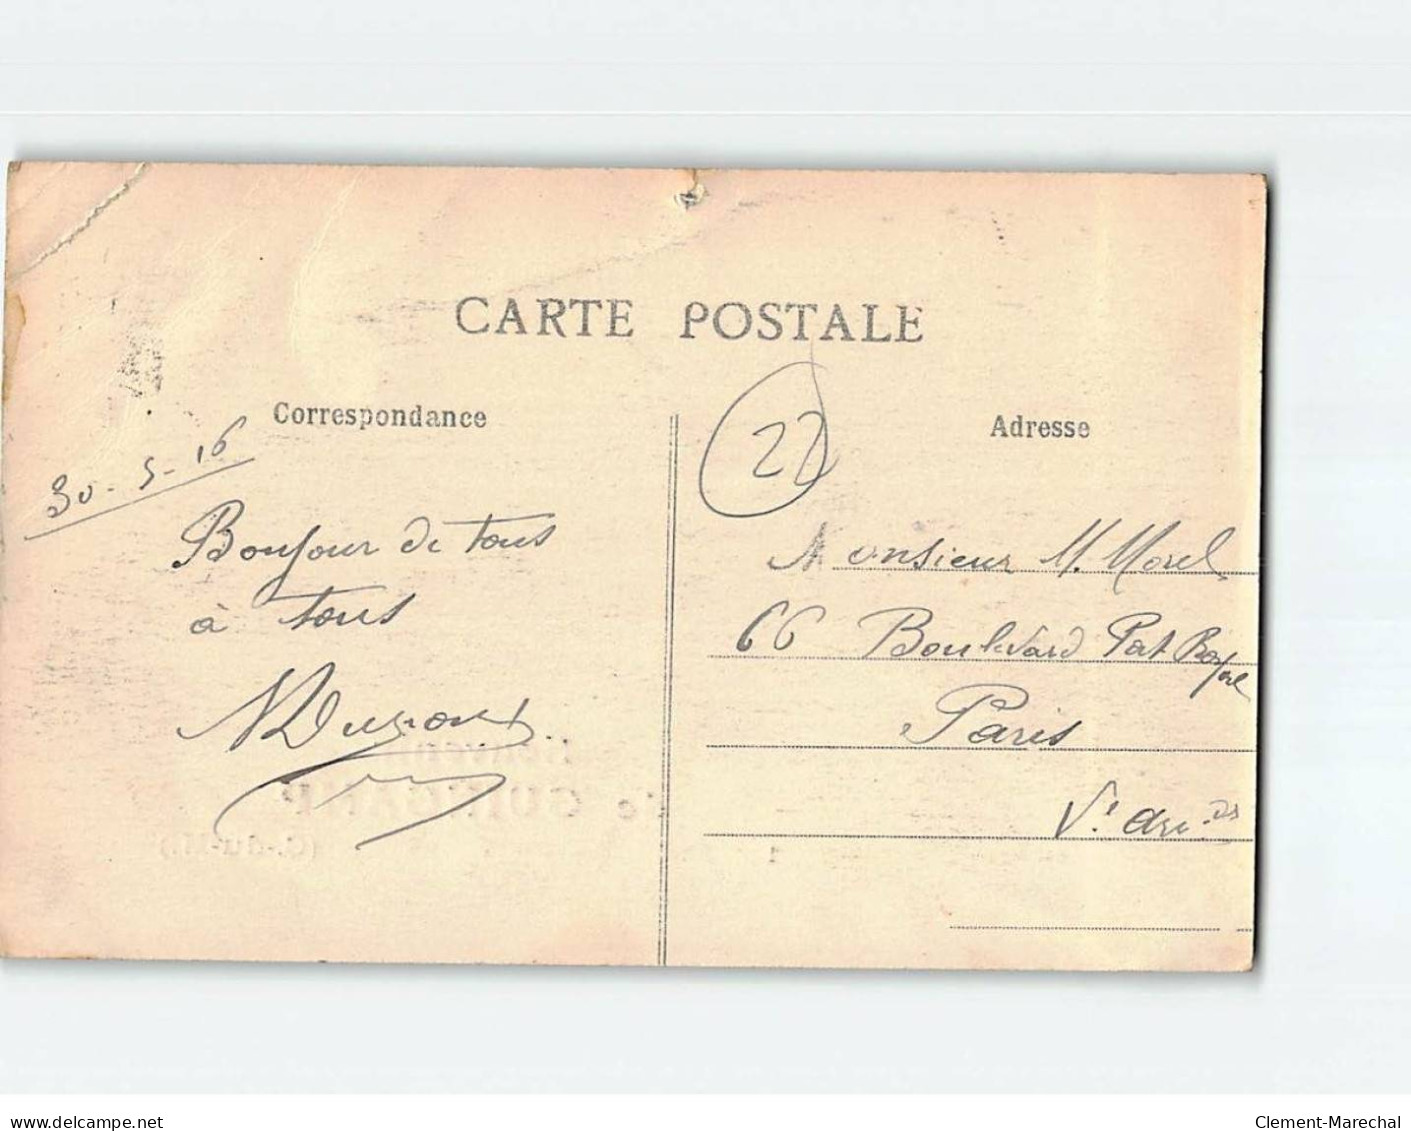 CARTE POSTALE
Correspondance
Adresse
22
30-5-16
Bonjour de tous
à tous
Monsieur M. Morel
66 Boulevard Port Royal
Paris
Vᵉ
delcampe.net
Clement-Marechal